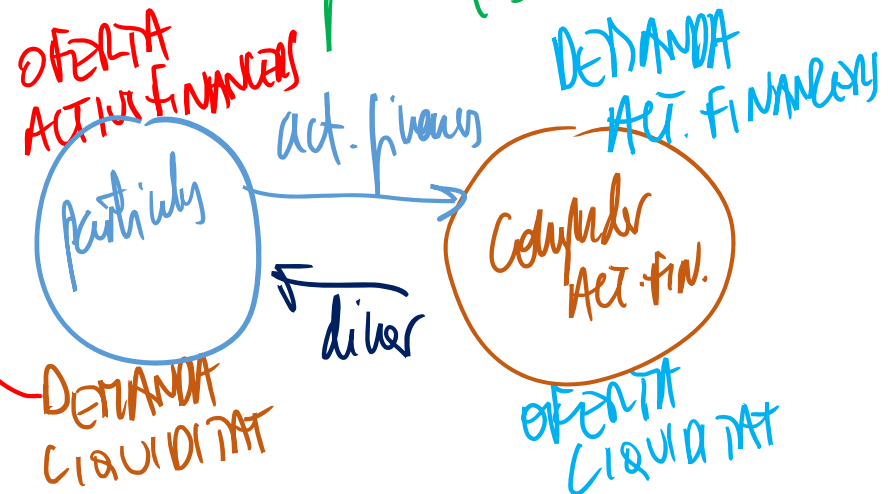 OFERTA
ACTIUS FINANCERS
DEMANDA
ACT. FINANCERS
act. financers
particulars
Comprador
ACT. FIN.
diner
DEMANDA
LIQUIDITAT
OFERTA
LIQUIDITAT